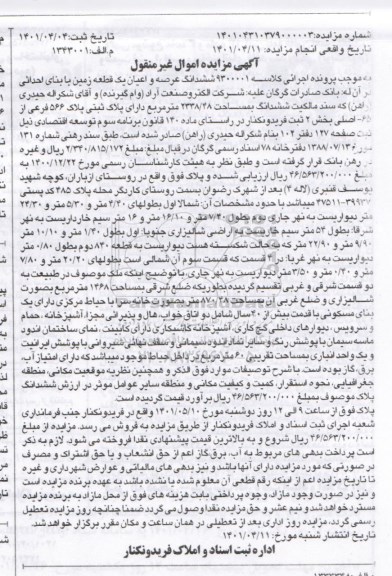 شماره مزایده: ۱۴۰۱۰۴۳۱۰۳۷۹۰۰۰۰۰۳ تاریخ ثبت: ۱۴۰۱/۰۴/۰۴
تاریخ واقعی انجام مزایده: ۱۴۰۱/۰۴/۱۱ م.الف: ۱۳۴۳۰۰۱
آگهی مزایده اموال غیرمنقول
به موجب پرونده اجرائی کلاسه ۹۳۰۰۰۰۱ ششدانگ عرصه و اعیان یک قطعه زمین با بنای احداثی
در آن له: بانک صادرات گرگان علیه: شرکت الکترو صنعت آراد (وام گیرنده) و آقای شکراله حیدری
(راهن) که سند مالکیت ششدانگ بمساحت ۲۳۳۸/۴۸ مترمربع دارای پلاک ثبتی پلاک ۵۶۶ فرعی از
اصلی بخش ۲ ثبت فریدونکنار در راستای ماده ۱۴۰ قانون برنامه سوم توسعه اقتصادی ذیل
ثبت صفحه ۱۲۷ دفتر ۱۰۲ بنام شکراله حیدری (راهن) صادر شده است. طبق سند رهنی شماره ۱۳۱
مورخ ۱۳۸۸/۰۷/۱۳ دفترخانه ۷۸ اسناد رسمی گرگان در قبال مبلغ: مبلغ ۲/۳۴۰/۸۱۵/۱۷۲ ریال و غیره
در رهن بانک قرار گرفته است و طبق نظر به هیئت کارشناسان رسمی مورخ ۱۴۰۰/۱۲/۲۲ به
مبلغ ۴۶/۵۶۳/۲۰۰/۰۰۰ ریال ارزیابی شده و پلاک فوق واقع در روستای ازباران، کوچه شهید
یوسف قنبری (لاله ۴) بعد از شهرک رضوان بسمت روستای کاردگر محله پلاک ۴۸۵ کد پستی
میباشد با حدود مشخصات آن: شمالا اول بطولهای ۲/۴۰ متر و ۵/۳۰ متر و ۲۴/۳۰
متر دیواریست به نهر جاری دوم بطول ۷/۲۰ متر و ۱۶/۱۰ متر و ۱۶ متر سیم خارداریست به نهر
شرقا: بطول ۵۴ متر سیم خاردار به اراضی شالیزاری جنوبا: اول بطول ۱/۳۰ متر و ۱۰/۱۰ متر
۹/۹۰ متر و ۲۲/۹۰ متر که بحالت شکسته هست دیواریست به قطعه ۸۳۰ دوم بطول ۰/۸۰ متر
دیواریست به نهر غربا: در ۳ قسمت که قسمت سوم آن شمالی است بطولهای ۲۰/۲۰ متر و ۷/۸۰
متر و ۰/۲۰ متر و ۳/۵۰ متر دیواریست به نهر جاری. با توضیح اینکه ملک موصوف در طبیعت به
دو قسمت شرقی و غربی تقسیم گردیده بطوریکه ضلع شرقی بمساحت ۱۴۶۸ مترمربع بصورت
شالیزاری و ضلع غربی آن بمساحت ۸۷۰/۴۸ متر بصورت خانه سرا با حیاط مرکزی دارای یک
بنای مسکونی با قدمت بیش از ۴۰ سال شامل دو اتاق خواب، هال و پذیرائی مجزا، آشپزخانه، حمام
و سرویس، دیوارهای داخلی گچ کاری، آشپزخانه کاشیکاری دارای کابینت، نمای ساختمان اندود
ماسه سیمان با پوشش رنگ و سایر نما اندود سیمانی و سقف نهائی شیروانی با پوشش ایرانیت
و یک واحد انباری بمساحت تقریبی ۲۰ مترمربع در داخل حیاط موجود میباشد که دارای امتیاز آب،
برق، گاز بوده است. با شرح توصیفات موارد فوق الذکر و همچنین نظریه موقعیت مکانی، منطقه
جغرافیایی، نحوه استقرار، کمیت و کیفیت مکانی و منطقه سایر عوامل موثر در ارزش ششدانگ
پلاک موصوف بمبلغ ۴۶/۵۶۳/۲۰۰/۰۰۰ ریال برآورد قیمت گردیده است.
پلاک فوق از ساعت ۹ الی ۱۲ روز دوشنبه مورخ ۱۴۰۱/۰۵/۱۰ واقع در فریدونکنار جنب فرمانداری
شعبه اجرای ثبت اسناد و املاک فریدونکنار از طریق مزایده به فروش می رسد. مزایده از مبلغ
۴۶/۵۶۳/۲۰۰/۰۰۰ ریال شروع و به بالاترین قیمت پیشنهادی نقدا فروخته می شود. لازم به ذکر
است پرداخت بدهی های مربوط به آب، برق، گاز اعم از حق انشعاب و یا حق اشتراک و مصرف
در صورتی که مورد مزایده دارای آنها باشد و نیز بدهی های مالیاتی و عوارض شهرداری و غیره
تا تاریخ مزایده اعم از اینکه رقم قطعی آن معلوم شده یا نشده باشد به عهده برنده مزایده است
و نیز در صورت وجود مازاد، وجوه پرداختی بابت هزینه های فوق از محل مازاد به برنده مزایده
مسترد خواهد شد و نیم عشر و حق مزایده نقدا وصول می گردد ضمنا چنانچه روز مزایده تعطیل
رسمی گردد، مزایده روز اداری بعد از تعطیلی در همان ساعت و مکان مقرر برگزار خواهد شد.
تاریخ انتشار شنبه مورخ: ۱۴۰۱/۰۴/۱۱
اداره ثبت اسناد و املاک فریدونکنار